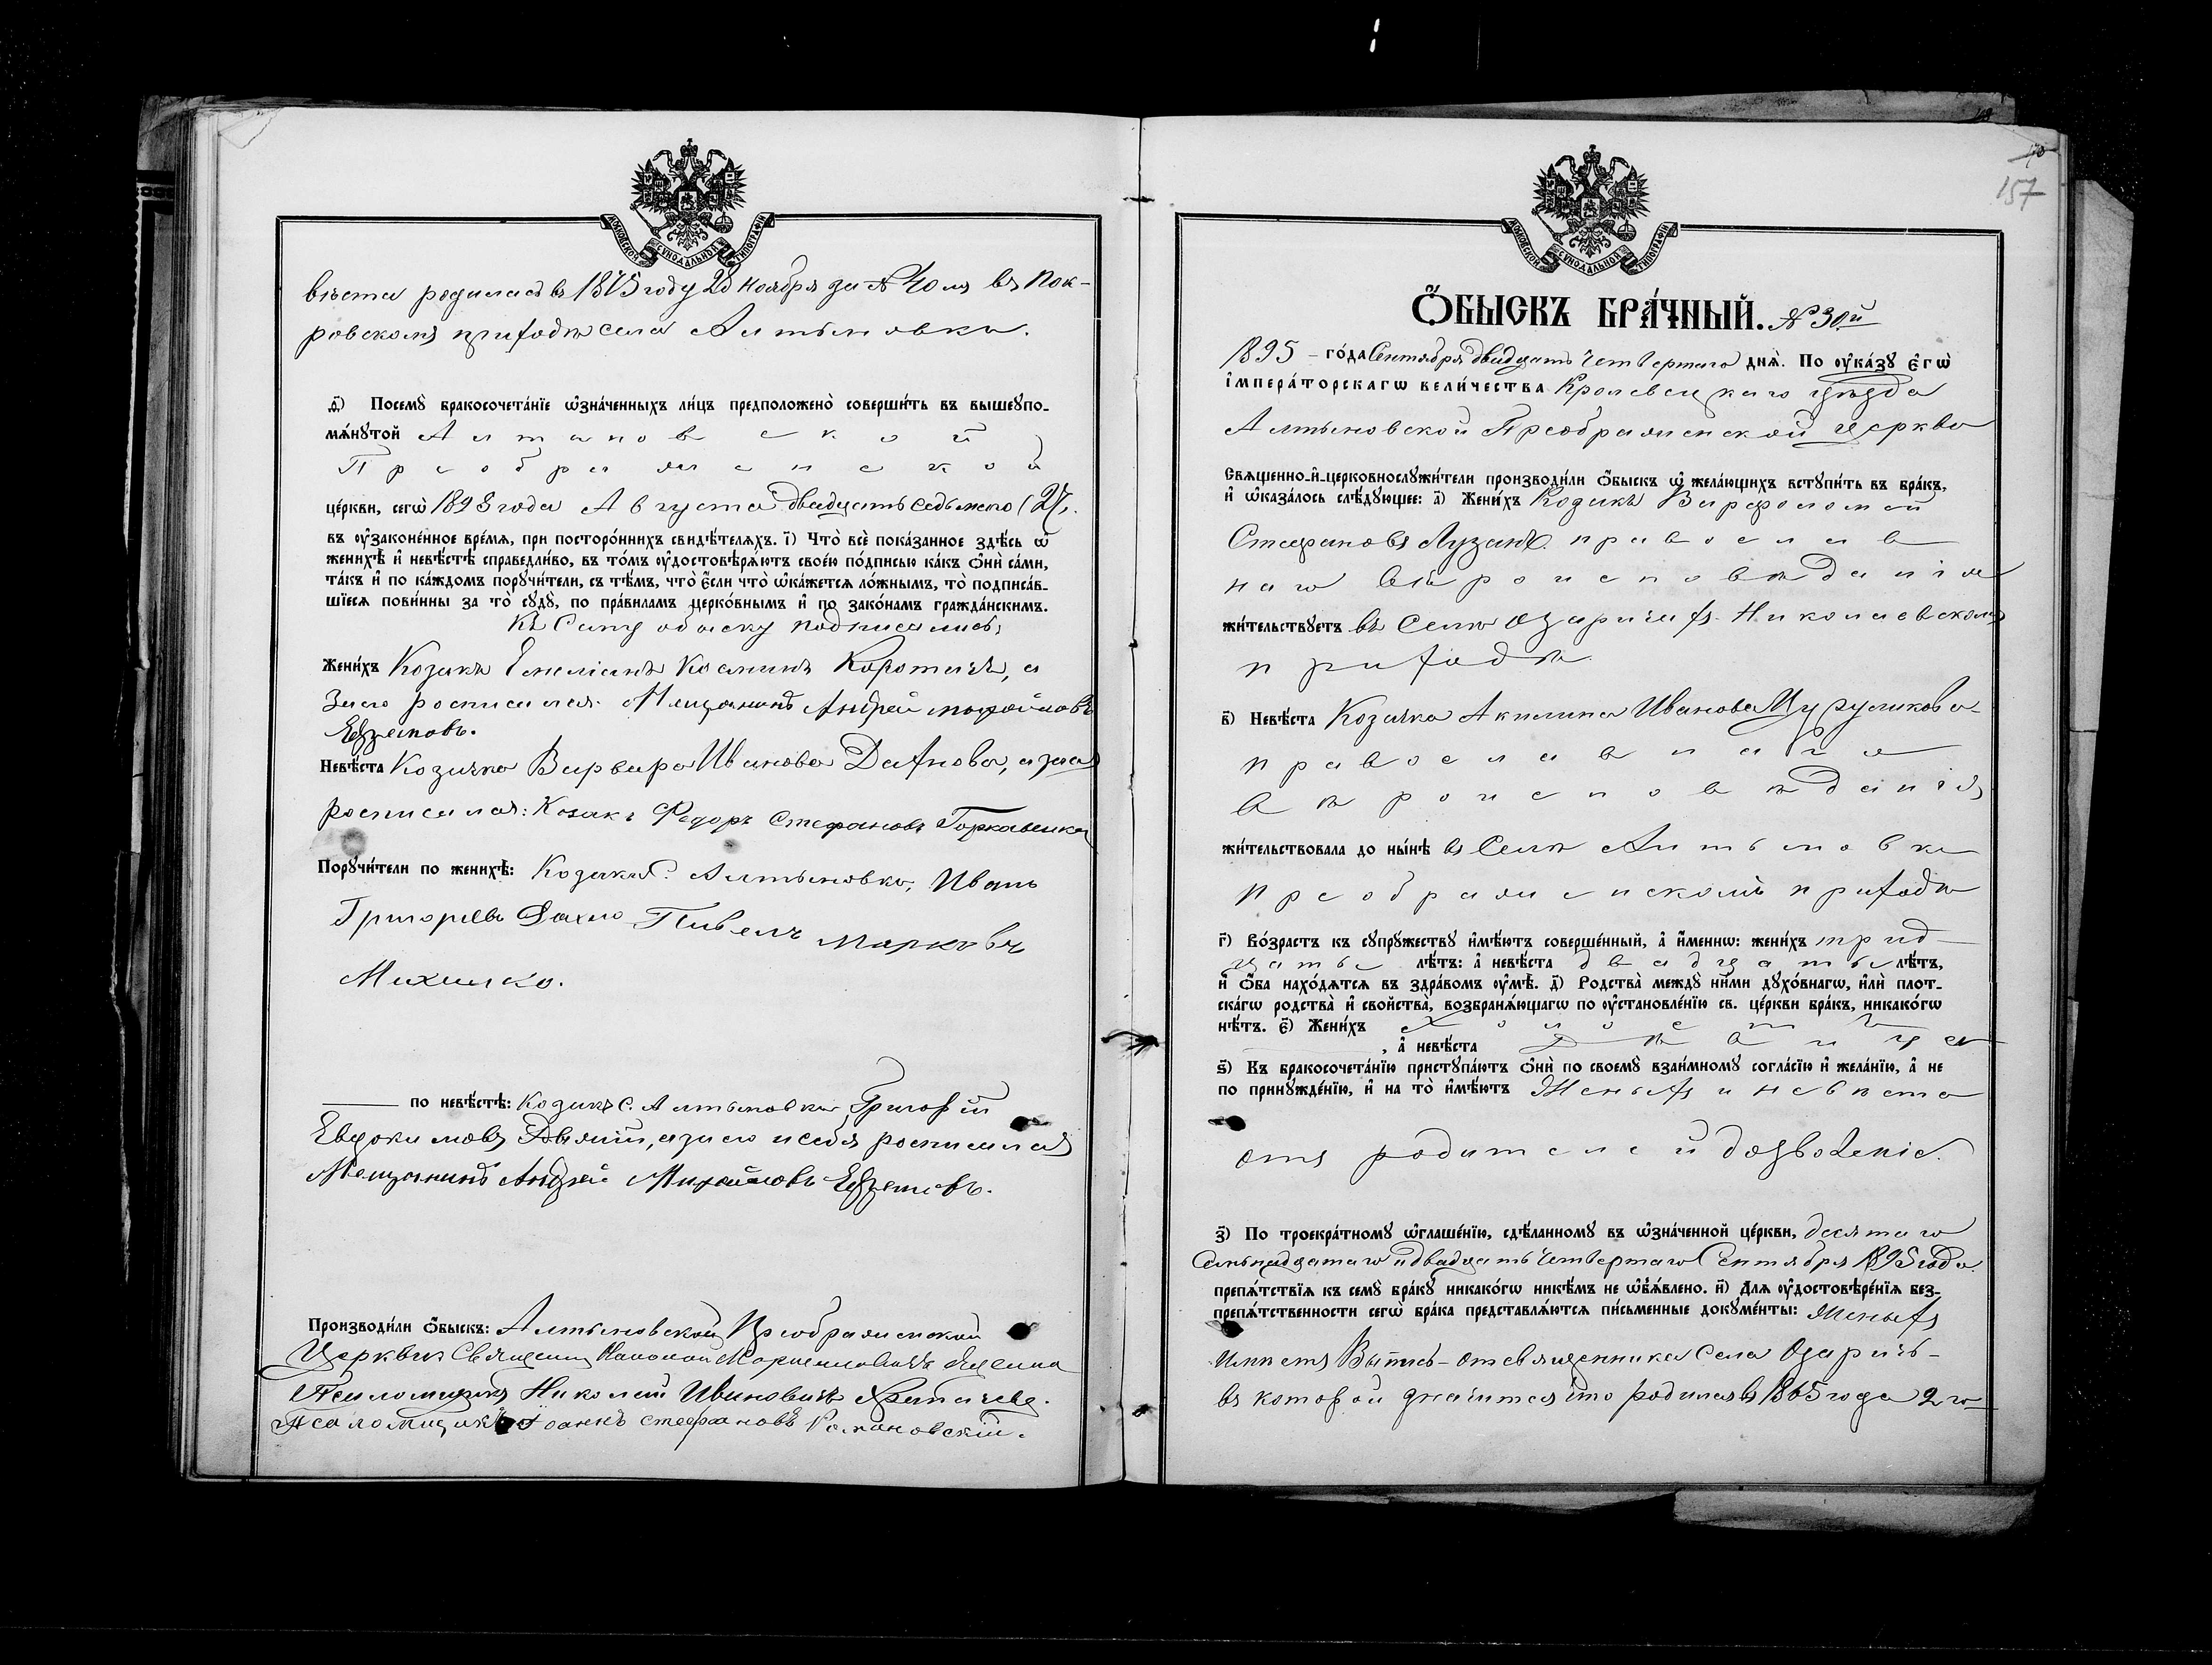 МОСКОВСКОЙ СѴНОДАЛЬНОЙ ТИПОГРАФІИ
вѣста родилась въ 1875 году 28 ноября за № 40 мъ въ Пок-
ровскомъ приходѣ села Алтыновки.
д҃) Посемꙋ бракосочета́нїе ѡ҆зна́ченныхъ ли́цъ предположено̀ соверши́ть въ вышеꙋпо-
мѧ́нꙋтой Алтыновской
Преображенской
це́ркви, сегѡ̀ 1893 года Августа двадцать седьмого (27).
въ ᲂу҆зако́ненное вре́мѧ, при посторо́ннихъ свидѣ́телѧхъ. і҃) Что̀ всѐ пока́занное здѣ́сь ѡ҆
женихѣ̀ и҆ невѣ́стѣ справедли́во, въ то́мъ ᲂу҆достовѣрѧ́ютъ свое́ю по́дписью ка́къ ѻ҆нѝ са́ми,
та́къ и҆ по ка́ждомъ порꙋчи́тели, съ тѣ́мъ, что̀ є҆́сли что̀ ѡ҆ка́жетсѧ ло́жнымъ, то̀ подписа́в-
шїесѧ пови́нны за то̀ сꙋдꙋ̀, по пра́виламъ церко́внымъ и҆ по зако́намъ гражда́нскимъ.
Къ сему обыску подписались;
Жени́хъ Козакъ Емеліанъ Косминъ Коротичъ, а
за него росписался Мещанинъ Андрей Михайловъ
Ефремовъ.
Невѣ́ста Козачка Варвара Иванова Дахнова, а за нея
росписался: Козакъ Федоръ Стефановъ Горкавенко
Порꙋчи́тели по женихѣ̀: Козакъ С. Алтыновки, Иванъ
Григорьевъ Дахно Павелъ Марковъ
Михилко.
по невѣ́стѣ: Козакъ с. Алтыновки, Григорій
Евдокимовъ а за него и себя росписался
Мещанинъ Андрей Михайловъ Ефремовъ.
Производи́ли ѻ҆́быскъ: Алтыновской Преображенской
Церкви Священ.
Псаломщикъ Николай Ивановичъ
Псаломщикъ Іоаннъ Стефановъ Романовскій.
157
МОСКОВСКОЙ СѴНОДАЛЬНОЙ ТИПОГРАФІИ
Ѻ҆́БЫСКЪ БРА́ЧНЫЙ. № 30й
1895 – го́да Сентября двадцать четвертаго днѧ̀. По ᲂу҆ка́зꙋ є҆гѡ̀
і҆мпера́торскагѡ вели́чества Кролевецкаго уѣзда
Алтыновской Преображенской церкви
Свѧщенно-и҆-церковнослꙋжи́тели производи́ли ѻ҆́быскъ ѡ҆ жела́ющихъ встꙋпи́ть въ бра́къ,
и҆ ѡ҆каза́лось слѣ́дꙋющее: а҃) Жени́хъ Козакъ Варфоломей
Стефановъ Лузанъ православ
наго вѣроисповѣданія
жи́тельствꙋетъ въ селѣ Озаричахъ Николаевскомъ
приходѣ.
в҃) Невѣ́ста Козачка Акилина Иванова Цурупикова
православнаго
вѣроисповѣданія
жи́тельствовала до ны́нѣ въ Селѣ Алтыновки
Преображенскомъ приходѣ
г҃) Во́зрастъ къ сꙋпрꙋ́жествꙋ и҆мѣ́ютъ соверше́нный, а҆ и҆́менно: жени́хъ трид-
цать лѣ́тъ: а҆ невѣ́ста двадцать лѣ́тъ,
и҆ ѻ҆́ба нахо́дѧтсѧ въ здра́вомъ ᲂу҆мѣ̀. д҃) Родства̀ междꙋ̀ ни́ми дꙋхо́внагѡ, и҆лѝ плот-
ска́гѡ родства̀ и҆ сво́йства̀, возбранѧ́ющагѡ по ᲂу҆становле́нїю св. це́ркви бра́къ, никако́гѡ
нѣ́тъ. є҃) Жени́хъ холостъ
, а҆ невѣ́ста дѣвица
ѕ҃) Къ бракосочета́нїю пристꙋпа́ютъ ѻ҆нѝ по своемꙋ̀ взаи́мномꙋ согла́сїю и҆ жела́нїю, а҆ не
по принꙋжде́нїю, и҆ на то̀ и҆мѣ́ютъ Женихъ и невѣста
отъ родителей дозволеніе.
з҃) По троекра́тномꙋ ѡ҆глаше́нїю, сдѣ́ланномꙋ въ ѡ҆зна́ченной це́ркви, десятаго
Семьнадцатаго и двадцать четвертаго Сентября 1895 года
препѧ́тствїѧ къ семꙋ̀ бра́кꙋ никако́гѡ никѣ́мъ не ѡ҆б̾ѧ́влено. и҃) Длѧ ᲂу҆достовѣре́нїѧ без-
препѧ́тственности сегѡ̀ бра́ка представлѧ́ютсѧ пи́сьменные докꙋме́нты: Женихъ
имѣетъ Выпись – от священника Села Озаричь –
въ которой значится что родился въ 1865 года 2 го